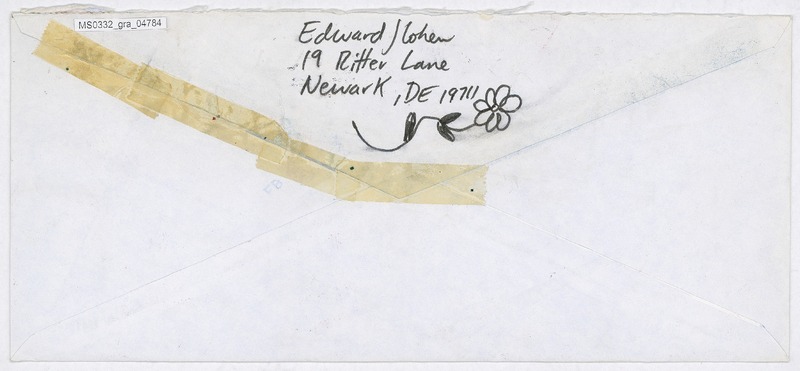 MS0332_gra_04784
Edward J Cohen
19 Ritter Lane
Newark, DE 19711